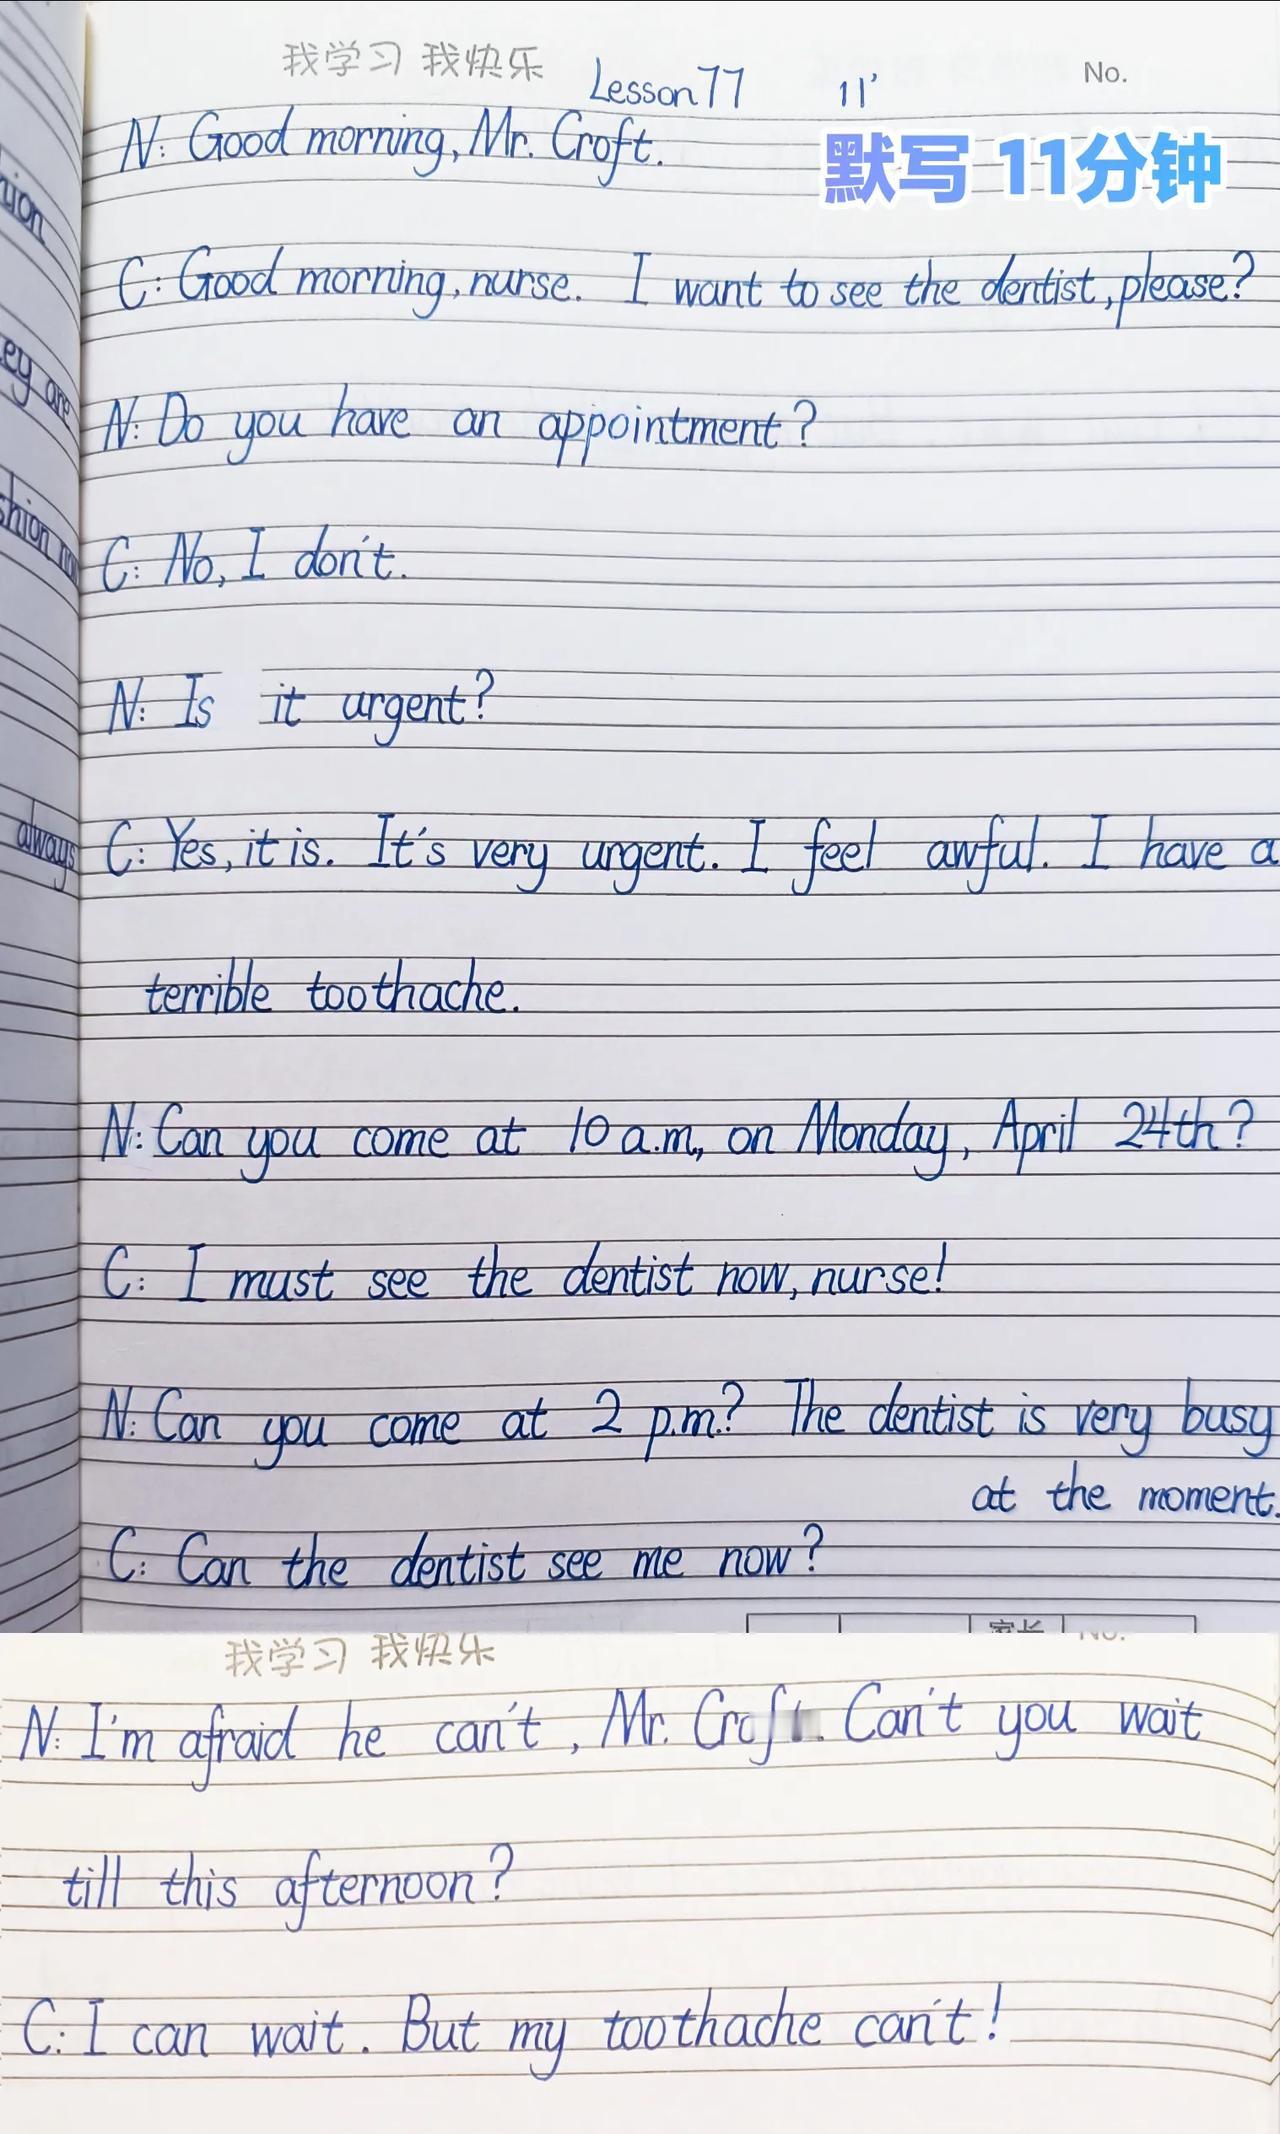 我学习 我快乐
Lesson 77 11' No.
N: Good morning, Mr. Croft.
默写 11分钟
C: Good morning, nurse. I want to see the dentist, please?
N: Do you have an appointment?
C: No, I don't.
N: Is it urgent?
C: Yes, it is. It's very urgent. I feel awful. I have a
terrible toothache.
N: Can you come at 10 a.m, on Monday, April 24th?
C: I must see the dentist now, nurse!
N: Can you come at 2 p.m.? The dentist is very busy
at the moment.
C: Can the dentist see me now?
家长 No.
我学习 我快乐
N: I'm afraid he can't, Mr. Croft. Can't you wait
till this afternoon?
C: I can wait. But my toothache can't!
ey are
always